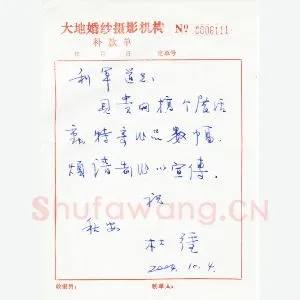 大地婚纱摄影机构 No 0006111
补款单
年 月 日
利军道兄:
贵网搞个展活
动, 特寄此品数幅,
烦请 此以宣传.
祝
秋安
杜
2004.10.4.
Shufawang.CN
收银员: 制单人: